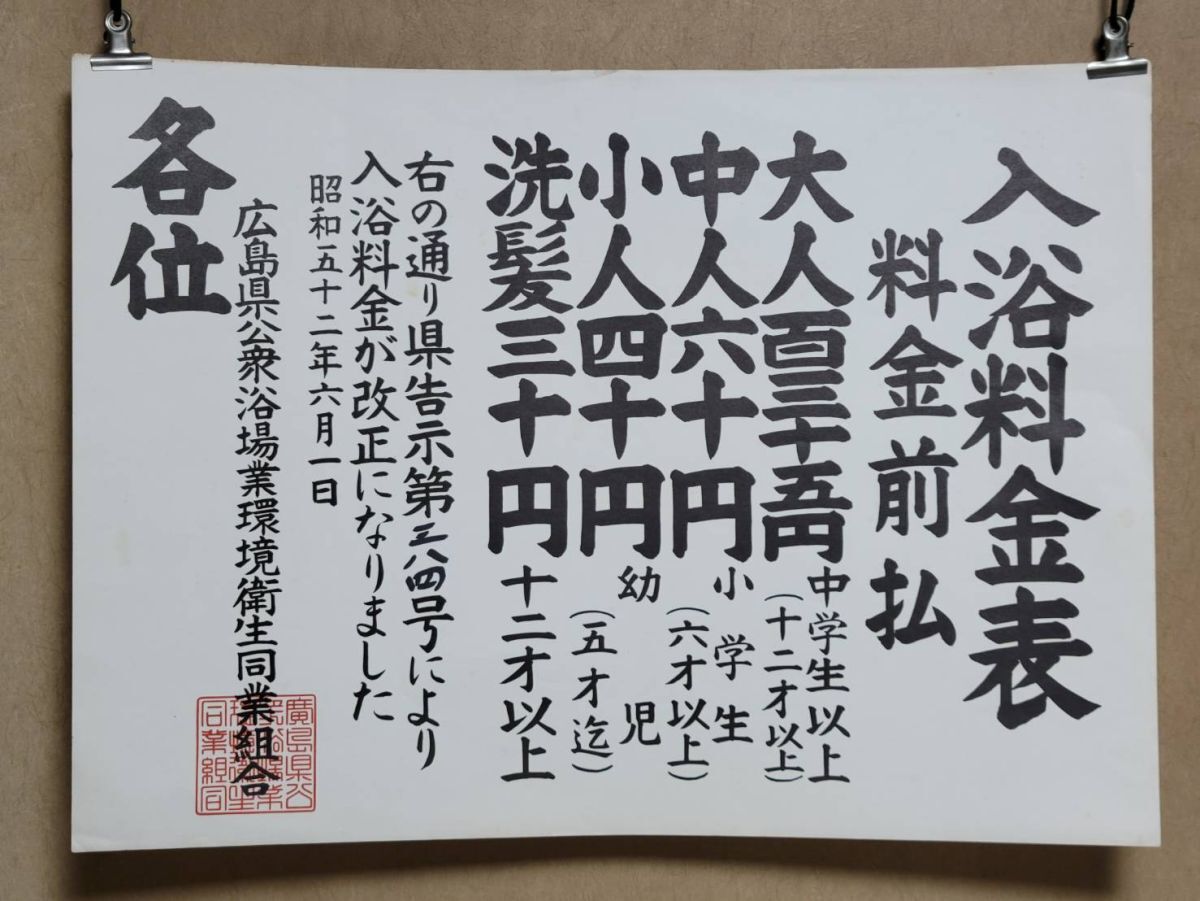 入浴料金表
料金前払
大人百三十五円 中学生以上(十二才以上)
中人六十円 小学生(六才以上)
小人四十円 幼児(五才迄)
洗髪三十円 十二才以上
右の通り県告示第三八四号により
入浴料金が改正になりました
昭和五十二年六月一日
広島県公衆浴場業環境衛生同業組合
各位